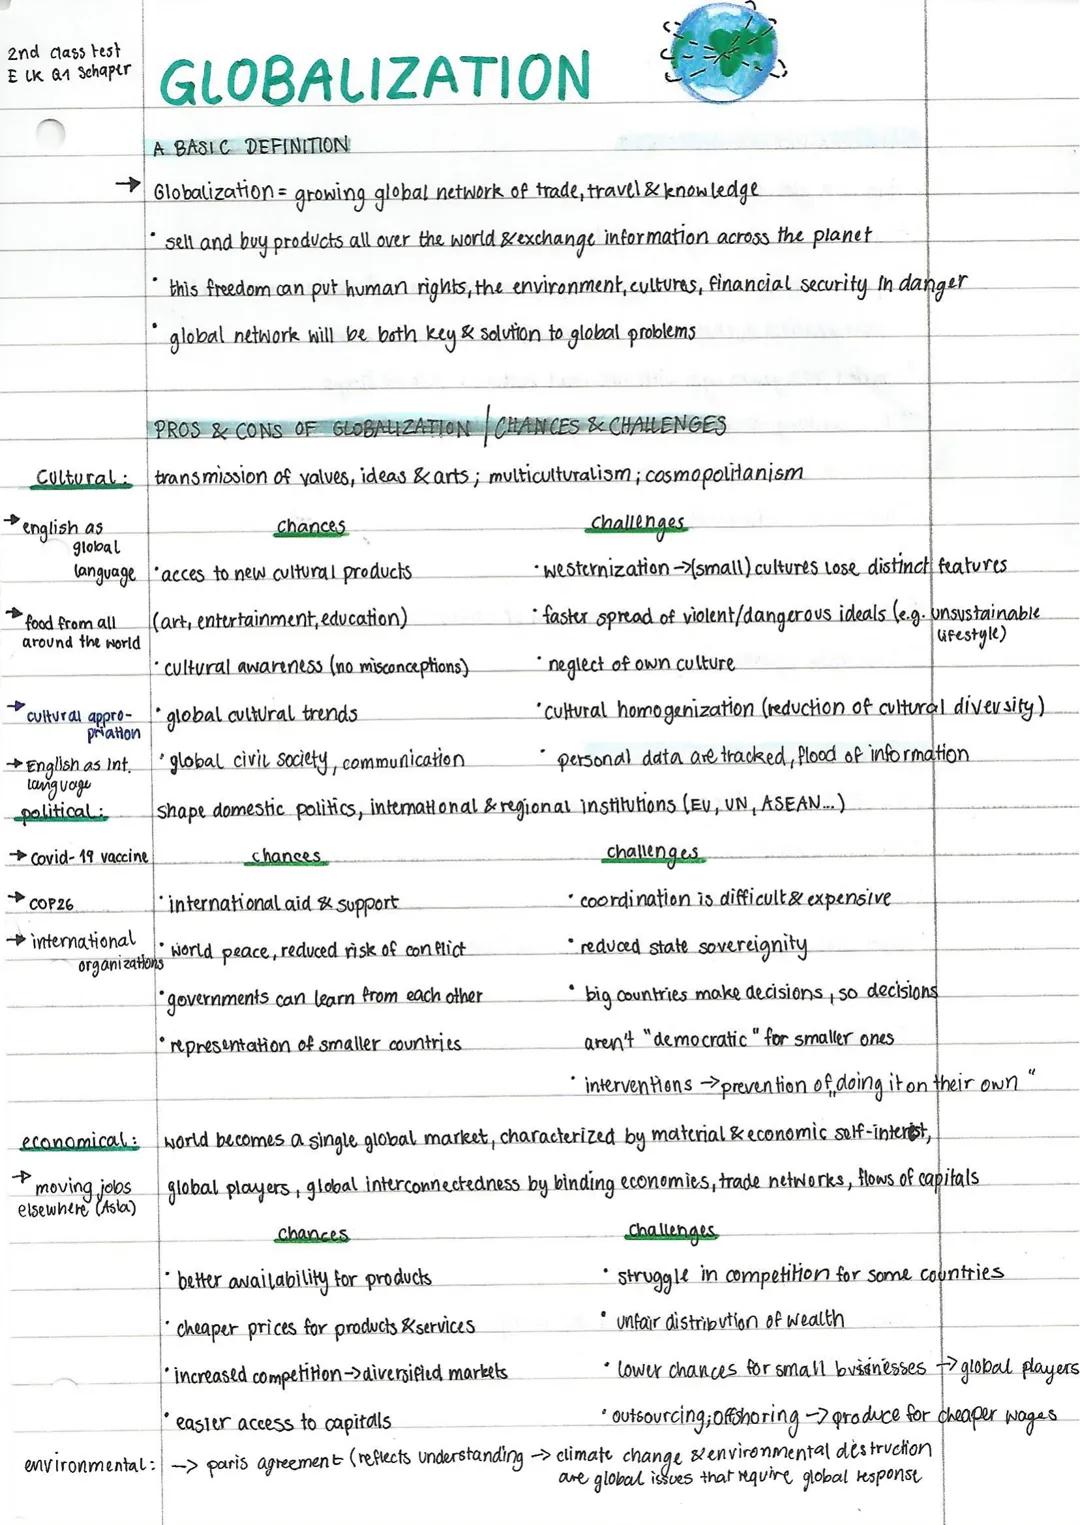 2nd class test
E LK Q1 Schaper
GLOBALIZATION
A BASIC DEFINITION
→ Globalization = growing global network of trade, travel & knowledge
· sell and buy products all over the world & exchange information across the planet
· this freedom can put human rights, the environment, cultures, financial security in danger
· global network will be both key & solution to global problems
PROS & CONS OF GLOBALIZATION / CHANCES & CHALLENGES
Cultural: transmission of values, ideas & arts; multiculturalism; cosmopolitanism
→ english as
global
language
→ food from all
around the world
→ cultural appro-
priation
→ English as int.
language
chances
· acces to new cultural products
(art, entertainment, education)
· cultural awareness (no misconceptions)
· global cultural trends
· global civil society, communication
challenges
· westernization → (small) cultures lose distinct features
· faster spread of violent/dangerous ideals (e.g. unsustainable
lifestyle)
· neglect of own culture
· cultural homogenization (reduction of cultural diversity)
· personal data are tracked, flood of information
political: shape domestic politics, international & regional institutions (EU, UN, ASEAN...)
→ Covid-19 vaccine
→ COP26
→ international
organizations
chances
· international aid & support
· world peace, reduced risk of conflict
· governments can learn from each other
· representation of smaller countries
challenges
· coordination is difficult & expensive
· reduced state sovereignity
· big countries make decisions, so decisions
aren't "democratic" for smaller ones
· interventions → prevention of „doing it on their own"
economical: world becomes a single global market, characterized by material & economic self-interest,
global players, global interconnectedness by binding economies, trade networks, flows of capitals
→ moving jobs
elsewhere (Asia)
chances
· better availability for products
· cheaper prices for products & services
· increased competition → diversified markets
· easier access to capitals
challenges
· struggle in competition for some countries
· unfair distribution of wealth
· lower chances for small businesses → global players
· outsourcing; offshoring → produce for cheaper wages
environmental: → paris agreement (reflects understanding → climate change & environmental destruction
are global issues that require global response